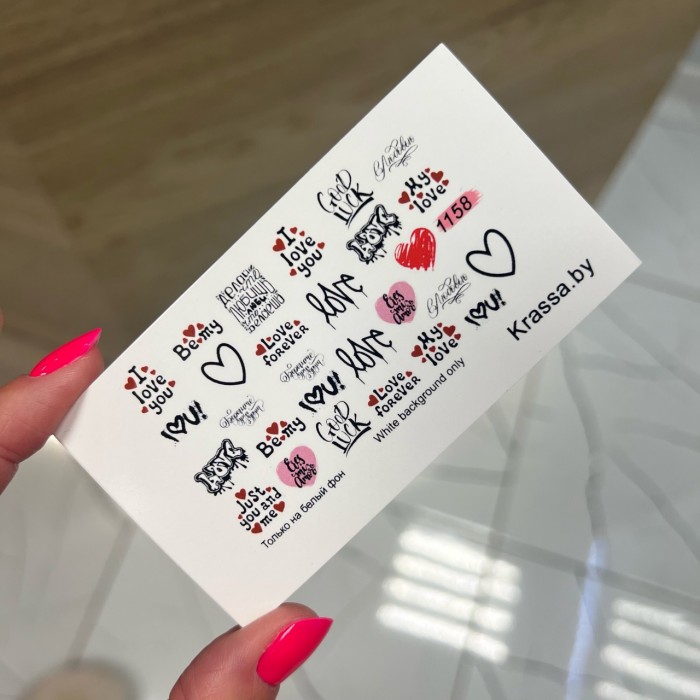 Улыбки
Good
Luck
My
love
1158
I
love
you
love
делай
что
любишь
люби
что
делаешь
Love
forever
Eres
mi
amor
I U!
Krassa.by
Be my
I
love
you
I U!
love
My
love
Love
forever
White background only
I U!
Be my
Good
Luck
Eres
mi
amor
Just
you and
me
Только на белый фон